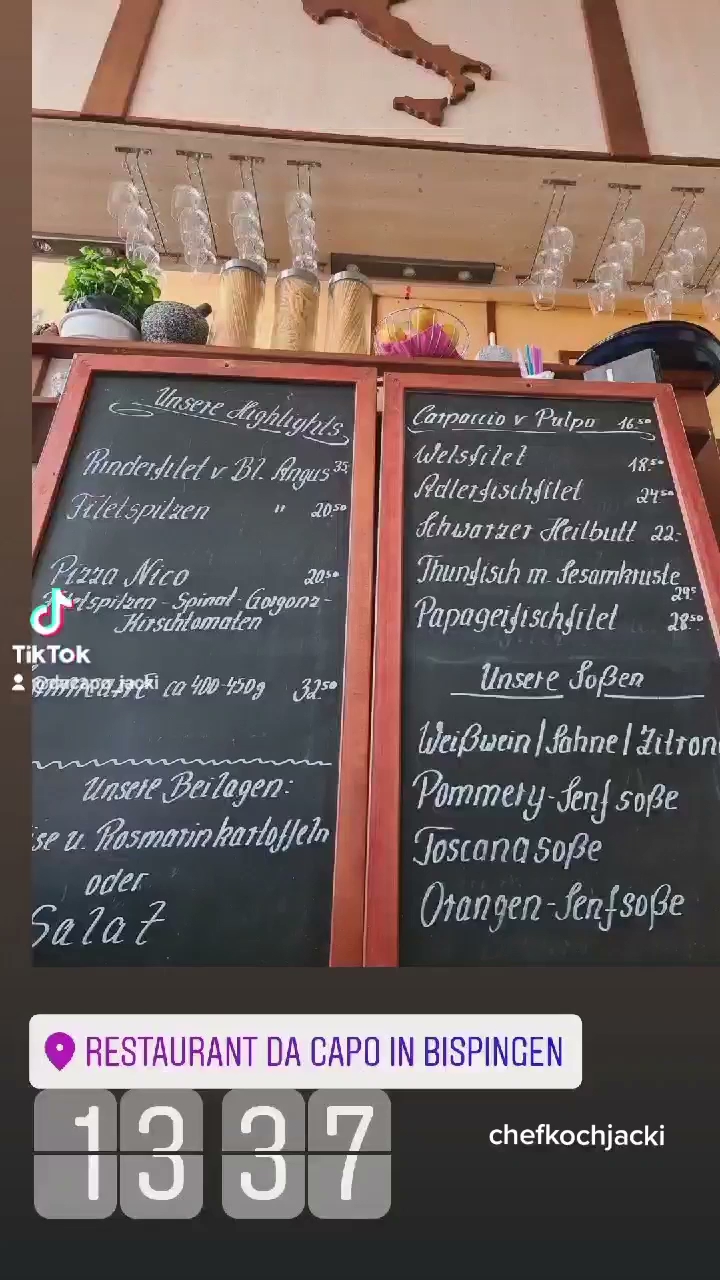 Unsere Highlights
Rinderfilet v. Bl. Angus 35
Filetspitzen " 20.50
Pizza Nico 20.50
Filetspitzen - Spinat - Gorgonz -
Kirschtomaten
ca 400-450g 32.50
Unsere Beilagen:
se u. Rosmarinkartoffeln
oder
Salat
Carpaccio v Pulpo 16.50
Welsfilet 18.50
Adlerfischfilet 24.50
Schwarzer Heilbutt 22.-
Thunfisch m. Sesamkruste
Papageifischfilet 28.50
Unsere Soßen
Weißwein/Sahne/Zitron
Pommery-Senfsoße
Toscanasoße
Orangen-Senfsoße
TikTok
@dacapo_jacki
RESTAURANT DA CAPO IN BISPINGEN
13 37
chefkochjacki